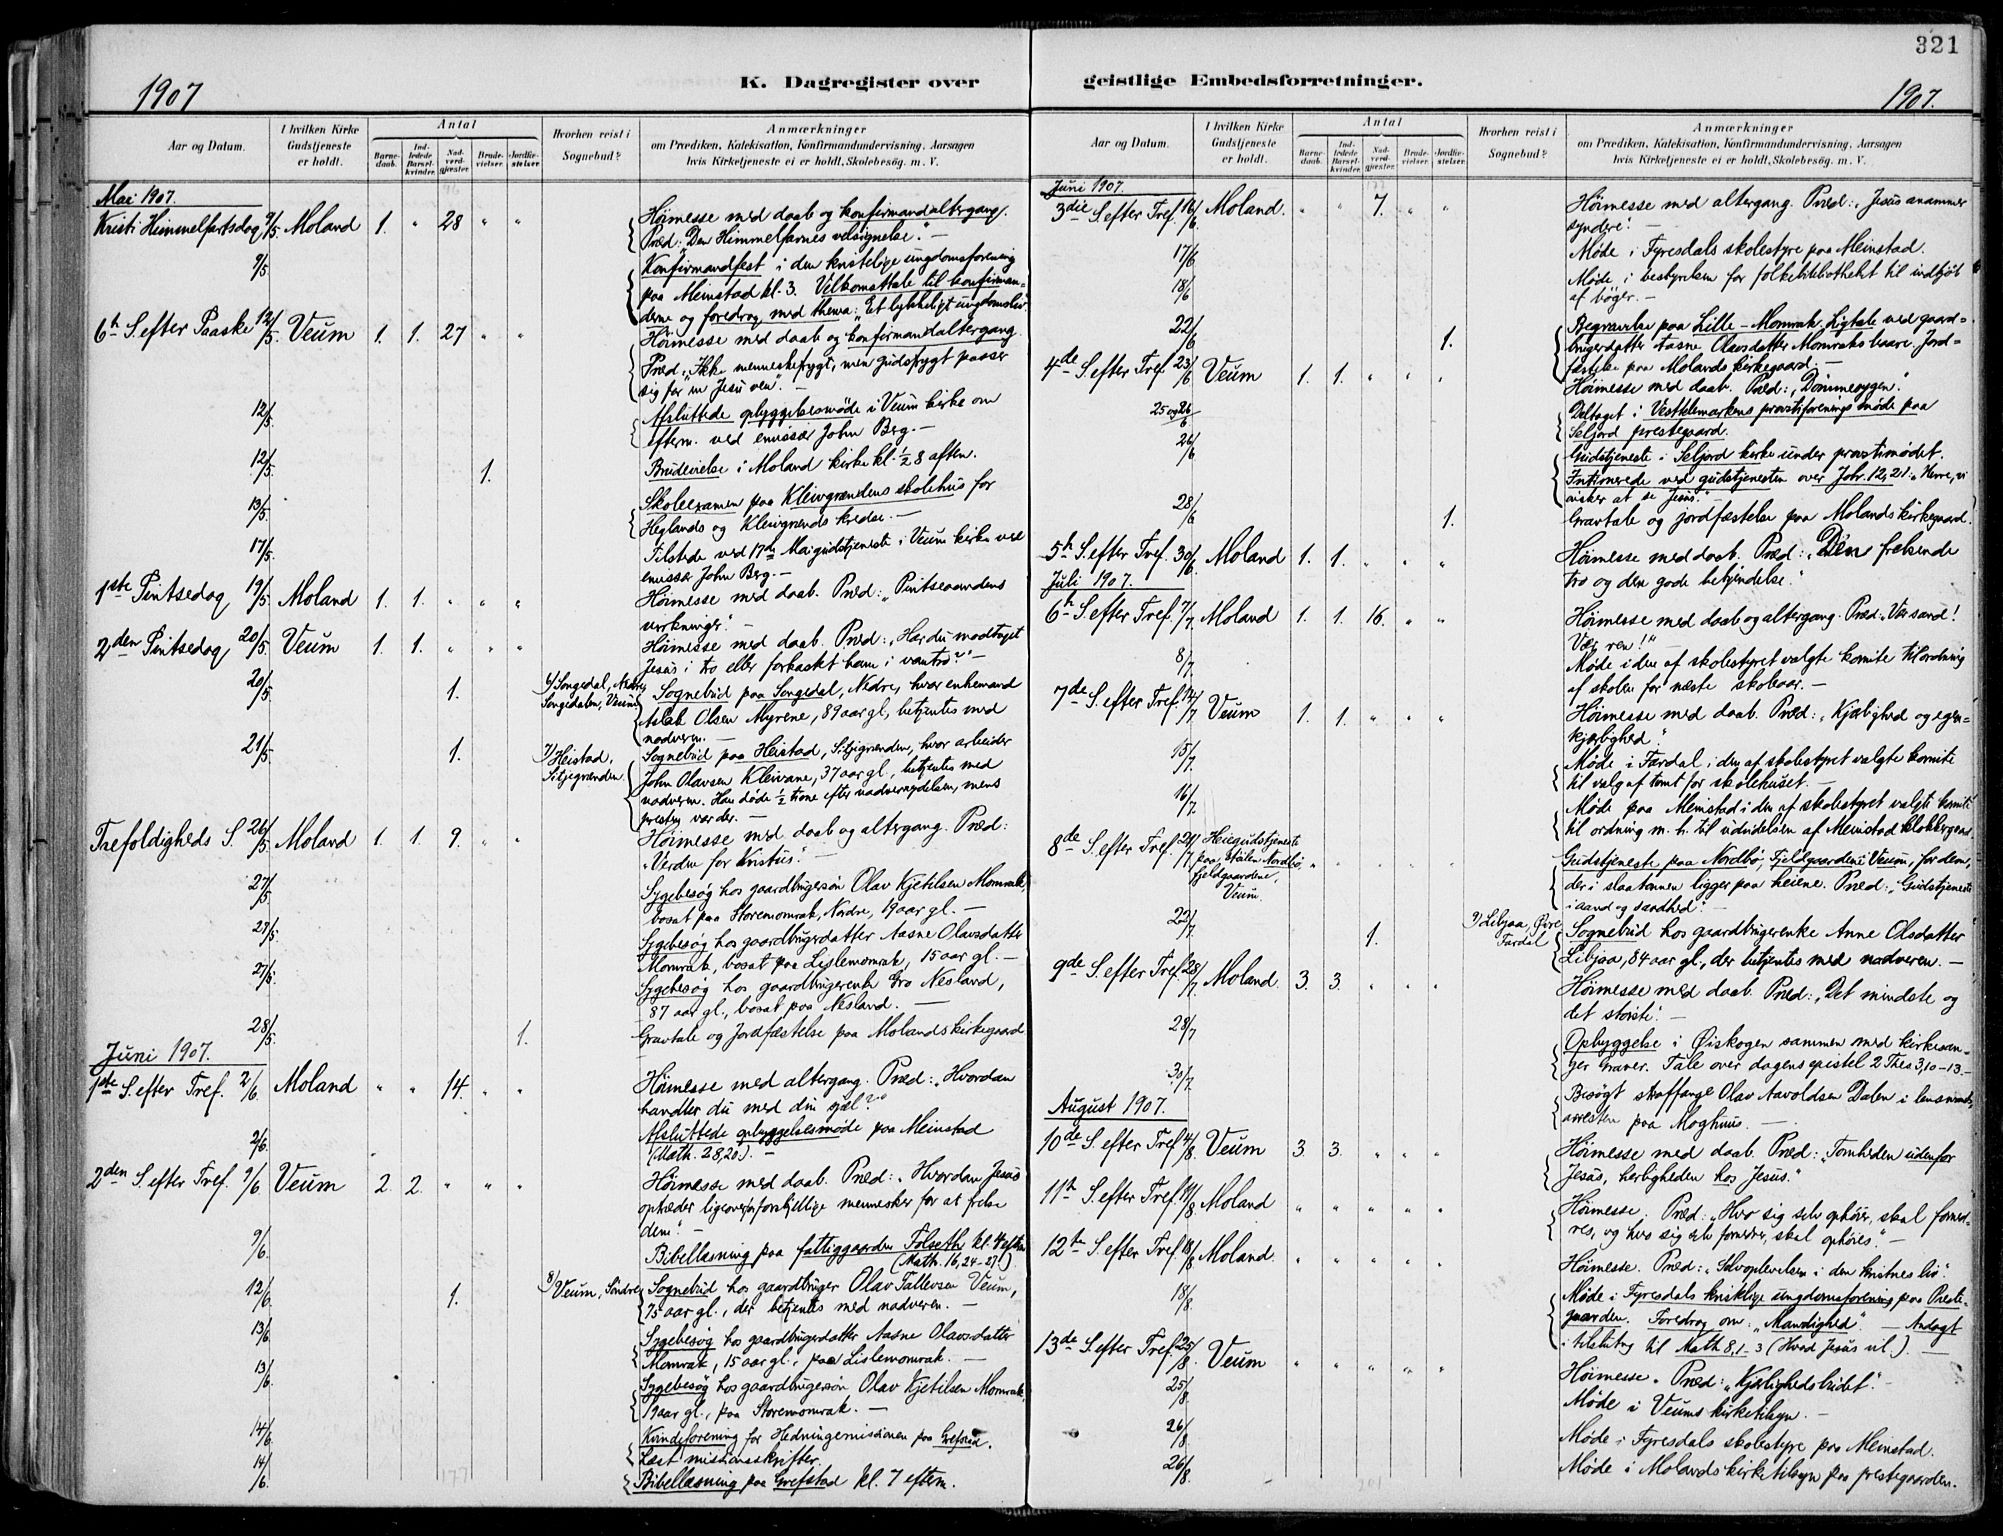 321
1907
K. Dagregister over
Aar og Datum.
I hvilken Kirke
Gudstjeneste
er holdt.
Antal
Barne-
daab.
Ind-
ledede
Barsel-
kvinder.
Nad-
verd-
gjester.
Brude-
vielser.
Jordfæ-
stelser.
Hvorhen reist i
Sognebud?
Anmærkninger
om Prædiken, Katekisation, Konfirmandundervisning, Aarsagen
hvis Kirketjeneste ei er holdt, Skolebesøg. m. V.
Mai 1907.
Kristi Himmelfartsdag 9/5. Moland 1. " 28 " " Høimesse med daab og konfirmandaltergang.
Præd: "Den Himmelfarnes velsignelse." –
9/5. Konfirmandfest i den kristelige ungdomsforening
paa Meinstad kl. 3. Velkomsttale til konfirman-
derne og foredrag med thema: "Et lykkeligt ungdomsliv".
6te S. efter Paaske 12/5. Veum 1. 1. 27 " " Høimesse med daab og konfirmandaltergang.
Præd: "Ikke menneskefrygt, men gudsfrygt passer
sig for en Jesu ven". –
12/5. Afsluttede opbyggelsesmøde i Veum kirke om
efterm. ved emissær John Berg. –
12/5. 1. Brudevielse i Moland kirke kl. ½ 8 aften.
13/5. Skoleexamen paa Kleivgrændens skolehus for
Heglands og Kleivgrænds kredse. –
17/5. Tilstede ved 17de Mai gudstjeneste i Veum kirke ved
emissær John Berg. –
1ste Pintsedag 19/5. Moland 1. 1. " " " Høimesse med daab. Præd: "Pintseaandens
virkninger". –
2den Pintsedag 20/5. Veum 1. 1. " " " Høimesse med daab. Præd: "Har du modtaget
Jesus i tro eller forkastet ham i vantro?" –
20/5. 1. 6) Songedal, Nedre, Sognebud paa Songedal, Nedre, hvor enkemand
Songedalen, Veum Aslak Olsen Myrene, 89 aar gl, betjentes med
nadveren. –
21/5. 1. 7) Heistad, Sognebud paa Heistad, Siljegrænden, hvor arbeider
Siljegrænden John Olavsen Kleivane, 37 aar gl., betjentes med
nadveren. Han døde ½ time efter nadvernydelsen, mens
presten var der. –
Trefoldigheds S. 26/5. Moland 1. 1. 9. " " Høimesse med daab og altergang. Præd:
"Verden for Kristus". –
27/5. Sygebesøg hos gaardbrugersøn Olav Kjetilsen Momrak,
bosat paa Storemomrak, Nordre, 19 aar gl. –
27/5. Sygebesøg hos gaardbrugerdatter Aasne Olavsdatter
Momrak, bosat paa Lislemomrak, 15 aar gl. –
27/5. Sygebesøg hos gaardbrugerenke Gro Nesland,
87 aar gl., bosat paa Nesland. –
28/5. 1. Gravtale og Jordfæstelse paa Molands kirkegaard
Juni 1907.
1ste S. efter Tref. 2/6. Moland " " 14. " " Høimesse med altergang. Præd: "Hvordan
handler du med din sjæl?"
2/6. Afsluttede opbyggelsesmøde paa Meinstad
(Math. 28,20). –
2den S. efter Tref. 9/6 Veum 2. 2. " " " Høimesse med daab. Præd: "Hvordan Jesus
optræder ligeoverfor forskjellige mennesker for at frelse
dem". –
9/6. Bibellæsning paa fattiggaarden Folseth kl. 4 eftm
(Math. 16,24-27.)
12/6. 1. 8) Veum, Søndre Sognebud hos gaardbruger Olav Tallevsen Veum,
75 aar gl., der betjentes med nadveren. –
13/6. Sygebesøg hos gaardbrugerdatter Aasne Olavsdatter
Momrak, 15 aar gl., paa Lislemomrak. –
13/6. Sygebesøg hos gaardbrugersøn Olav Kjetilsen Momrak,
19 aar gl., paa Storemomrak. –
14/6. Kvindeforening for Hedningemissionen paa Grefstad.
Læst missionsskrifter.
14/6. Bibellæsning paa Grefstad kl. 7 efterm.
177
geistlige Embedsforretninger.
1907.
Aar og Datum.
I hvilken Kirke
Gudstjeneste
er holdt.
Antal
Barne-
daab.
Ind-
ledede
Barsel-
kvinder.
Nad-
verd-
gjester.
Brude-
vielser.
Jordfæ-
stelser.
Hvorhen reist i
Sognebud?
Anmærkninger
om Prædiken, Katekisation, Konfirmandundervisning, Aarsagen
hvis Kirketjeneste ei er holdt, Skolebesøg. m. V.
Juni 1907.
3die S. efter Tref. 16/6 Moland. " " 7. " " Høimesse med altergang. Præd: "Jesus anammer
syndere". –
17/6 Møde i Fyresdals skolestyre paa Meinstad.
18/6 Møde i bestyrelsen for folkebibliotheket til indkjøb
af bøger. –
22/6 1. Begravelse paa Lille-Momrak. Ligtale ved gaard-
brugerdatter Aasne Olavsdatter Momraks baare. Jord-
fæstelse paa Molands kirkegaard. –
4de S. efter Tref. 23/6 Veum 1. 1. " " " Høimesse med daab. Præd: "Dømmesygen".
25 og 26/6 Deltaget i Vesttelemarkens provstiforenings møde paa
Seljord prestegaard.
26/6 Gudstjeneste i Seljord kirke under provstimødet.
Intimerede ved gudstjenesten over Joh. 12,21: "Herre, vi
ønsker at se Jesus." –
28/6 1. Gravtale og jordfæstelse paa Molands kirkegaard.
5te S. efter Tref. 30/6 Moland 1. 1. " " " Høimesse med daab. Præd: "Den frelsende
tro og den gode bekjendelse."
Juli 1907.
6te S. efter Tref. 7/7. Moland 1. 1. 16. " " Høimesse med daab og altergang. Præd: "Vær sand!
Vær ren!"
8/7. Møde i den af skolestyret valgte komite til ordning
af skolen for næste skoleaar. –
7de S. efter Tref. 14/7 Veum 1. 1. " " " Høimesse med daab. Præd: "Kjærlighed og egen-
kjærlighed."
15/7. Møde i Fardal i den af skolestyret valgte komite
til valg af tomt for skolehuset. –
16/7. Møde paa Meinstad i den af skolestyret valgte komite
til ordning m. h. til udvidelsen af Meinstad klokkergaard.
8de S. efter Tref. 21/7 Heiegudstjeneste Gudstjeneste paa Nordbø, Fjeldgaardene i Veum, for dem,
paa Stølen Nordbø, der i slaatonnen ligger paa heiene. Præd: "Gudstjeneste
Fjeldgaardene, i aand og sandhed". –
Veum.
22/7. 1. 9) Libjaa, Øvre Sognebud hos gaardbrugerenke Anne Olsdatter
Fardal Libjaa, 84 aar gl., der betjentes med nadveren. –
9de S. efter Tref. 28/7 Moland. 3. 3. " " " Høimesse med daab. Præd: "Det mindste og
det største". –
28/7. Opbyggelse i Øiskogen sammen med kirkesan-
ger Graver. Tale over dagens epistel 2 Thes 3,10-13. –
30/7. Besøgt straffange Olav Aavoldsen Dalen i lensmands-
arresten paa Moghuus. –
August 1907.
10de S. efter Tref. 4/8. Veum 3. 3. " " " Høimesse med daab. Præd: "Tomheden udenfor
Jesus, herligheden hos Jesus."
11te S. efter Tref. 11/8. Moland " " " " " Høimesse. Præd: "Hvo sig selv ophøier, skal forned-
res, og hvo sig selv fornedrer, skal ophøies". –
12te S. efter Tref. 18/8 Moland. " " " " " Høimesse. Præd: "Selvoplevelsen i den kristnes liv".
18/8. Møde i Fyresdals kristelige ungdomsforening paa Preste-
gaarden. Foredrag om: "Mandighed". – Andagt
i tilslutning til Math 8,1-3 (Hvad Jesus vil.). –
13de S. efter Tref. 25/8. Veum " " " " " Høimesse. Præd: "Kjærlighedsbudet". –
25/8. Møde i Veums kirketilsyn. –
26/8. Møde i Fyresdals skolestyre paa Meinstad.
26/8. Møde i Molands kirketilsyn paa prestegaarden.